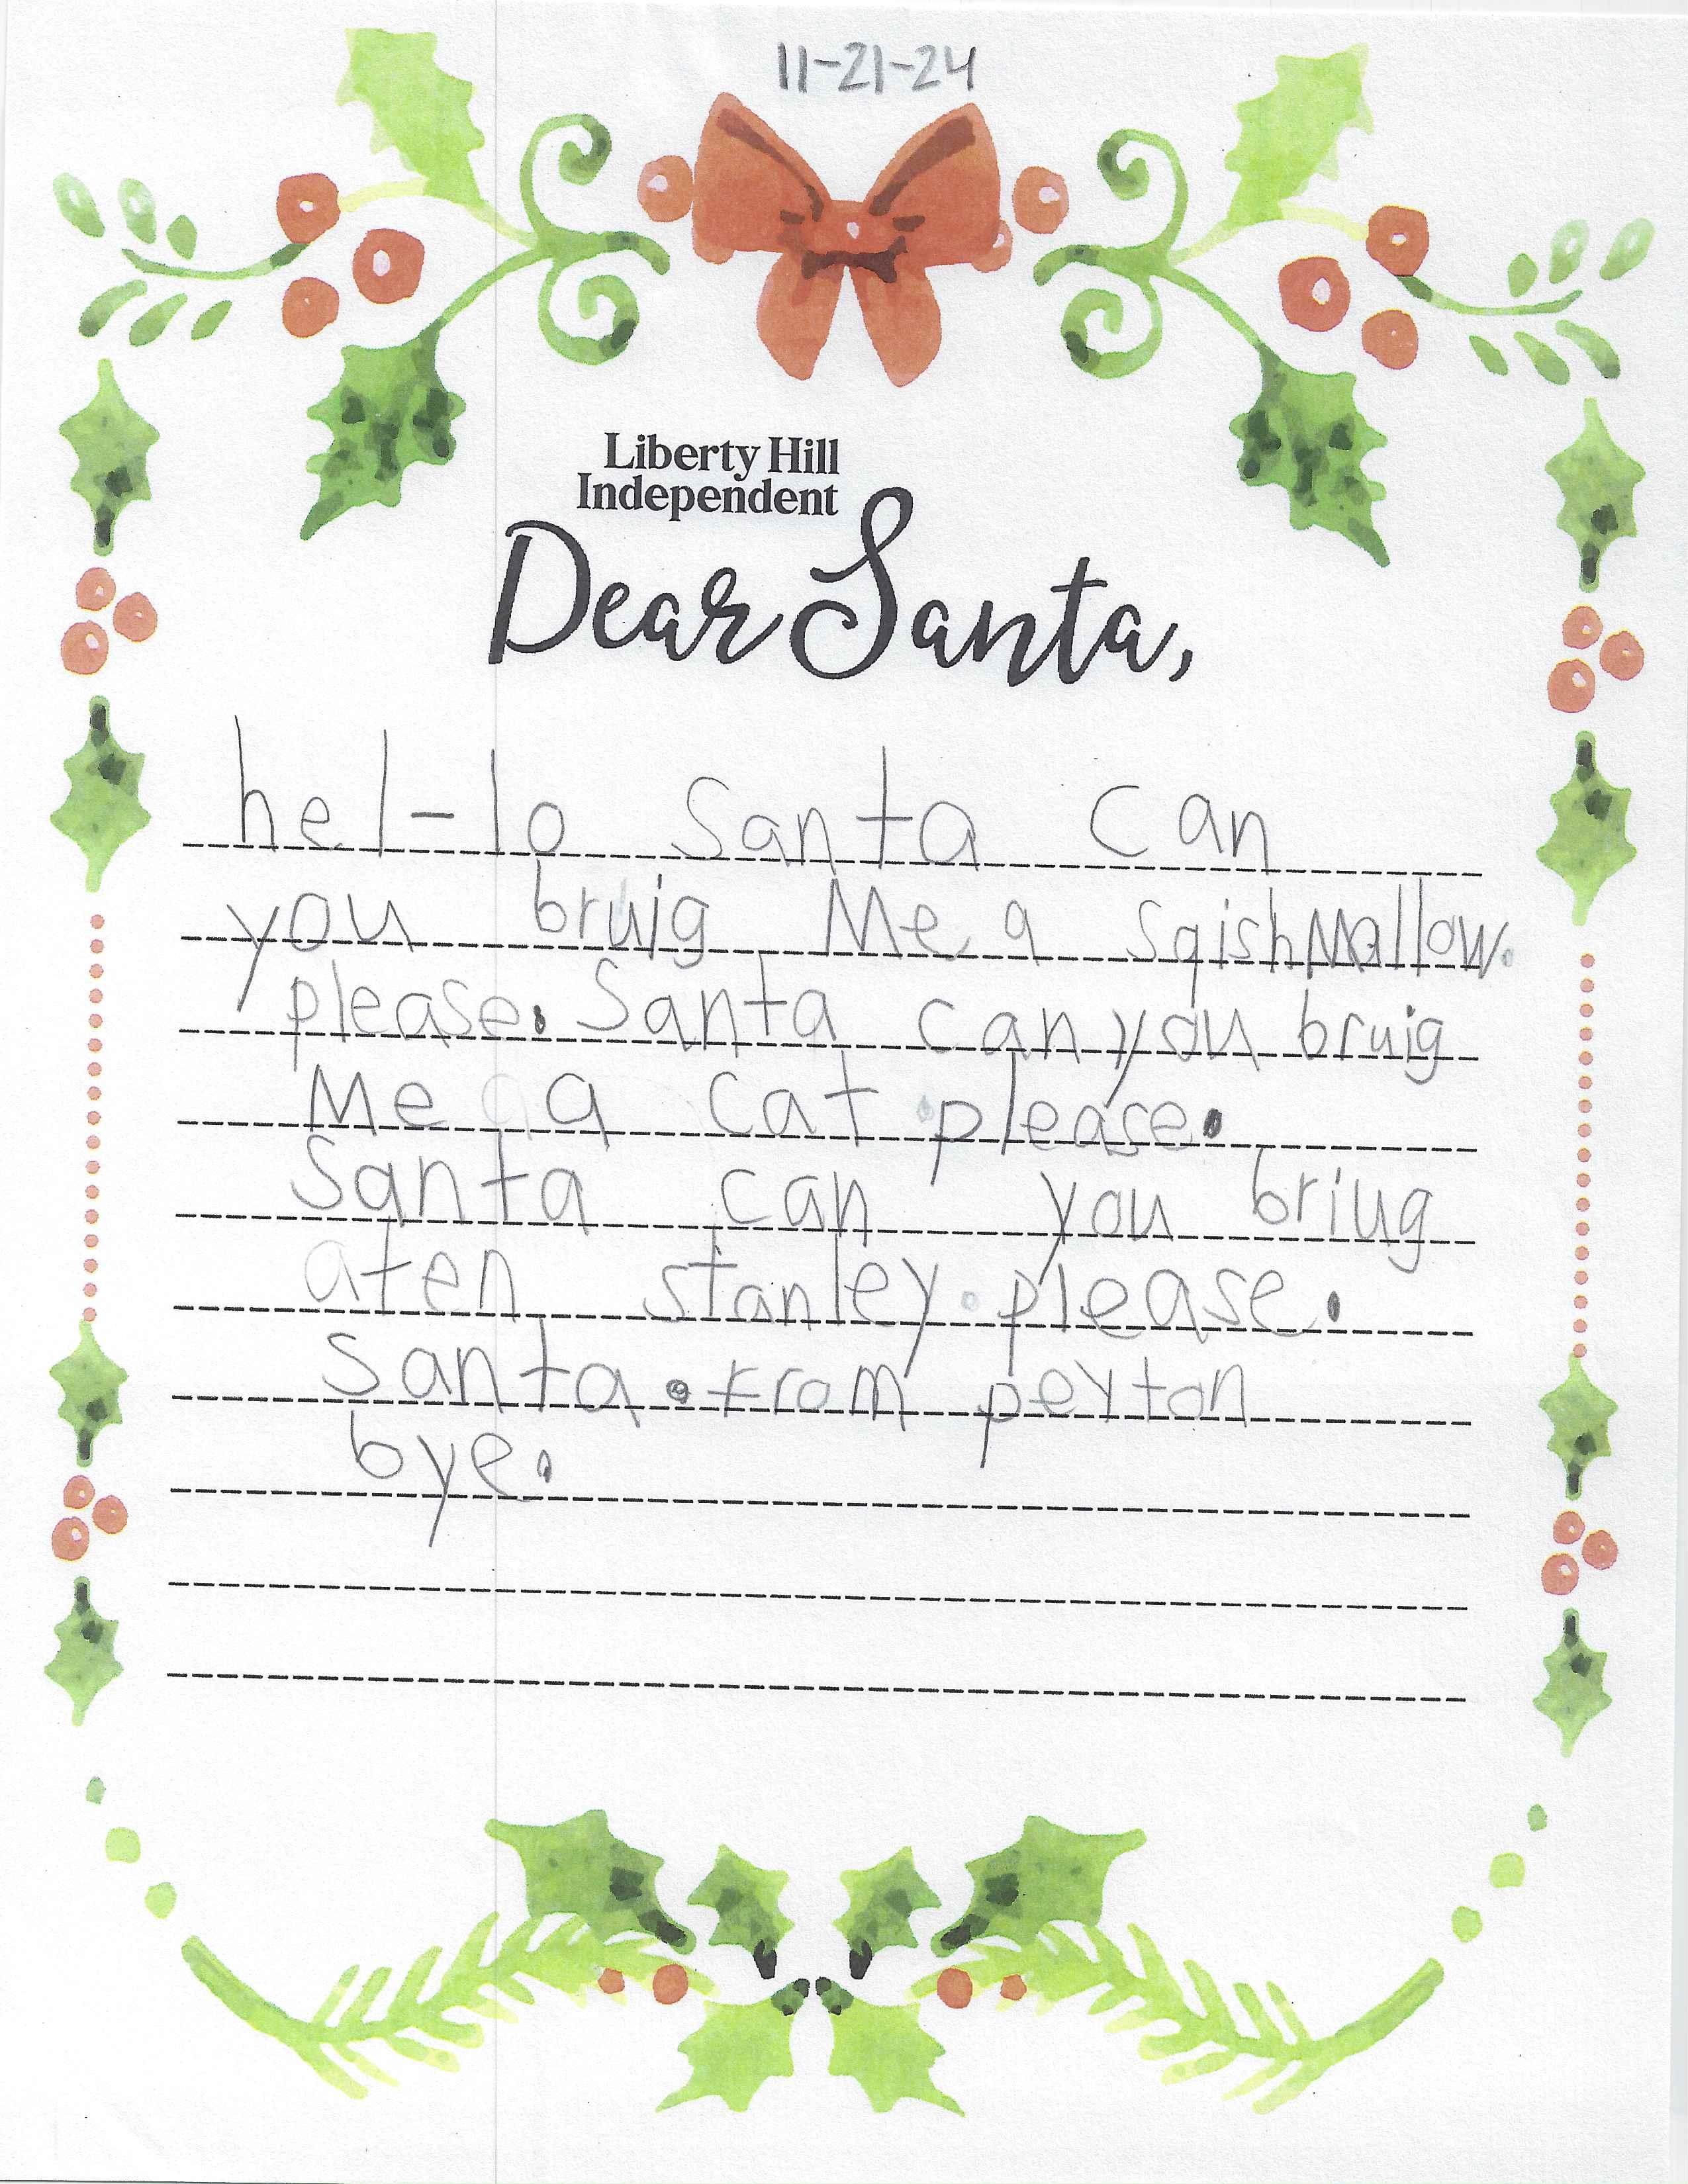 11-21-24
Liberty Hill
Independent
Dear Santa,
hel-lo Santa can
you bruig Me a SqishMallow.
please. Santa can you bruig
Me a cat please.
Santa can you briug
aten stanley. please.
Santa. From peyton
bye.